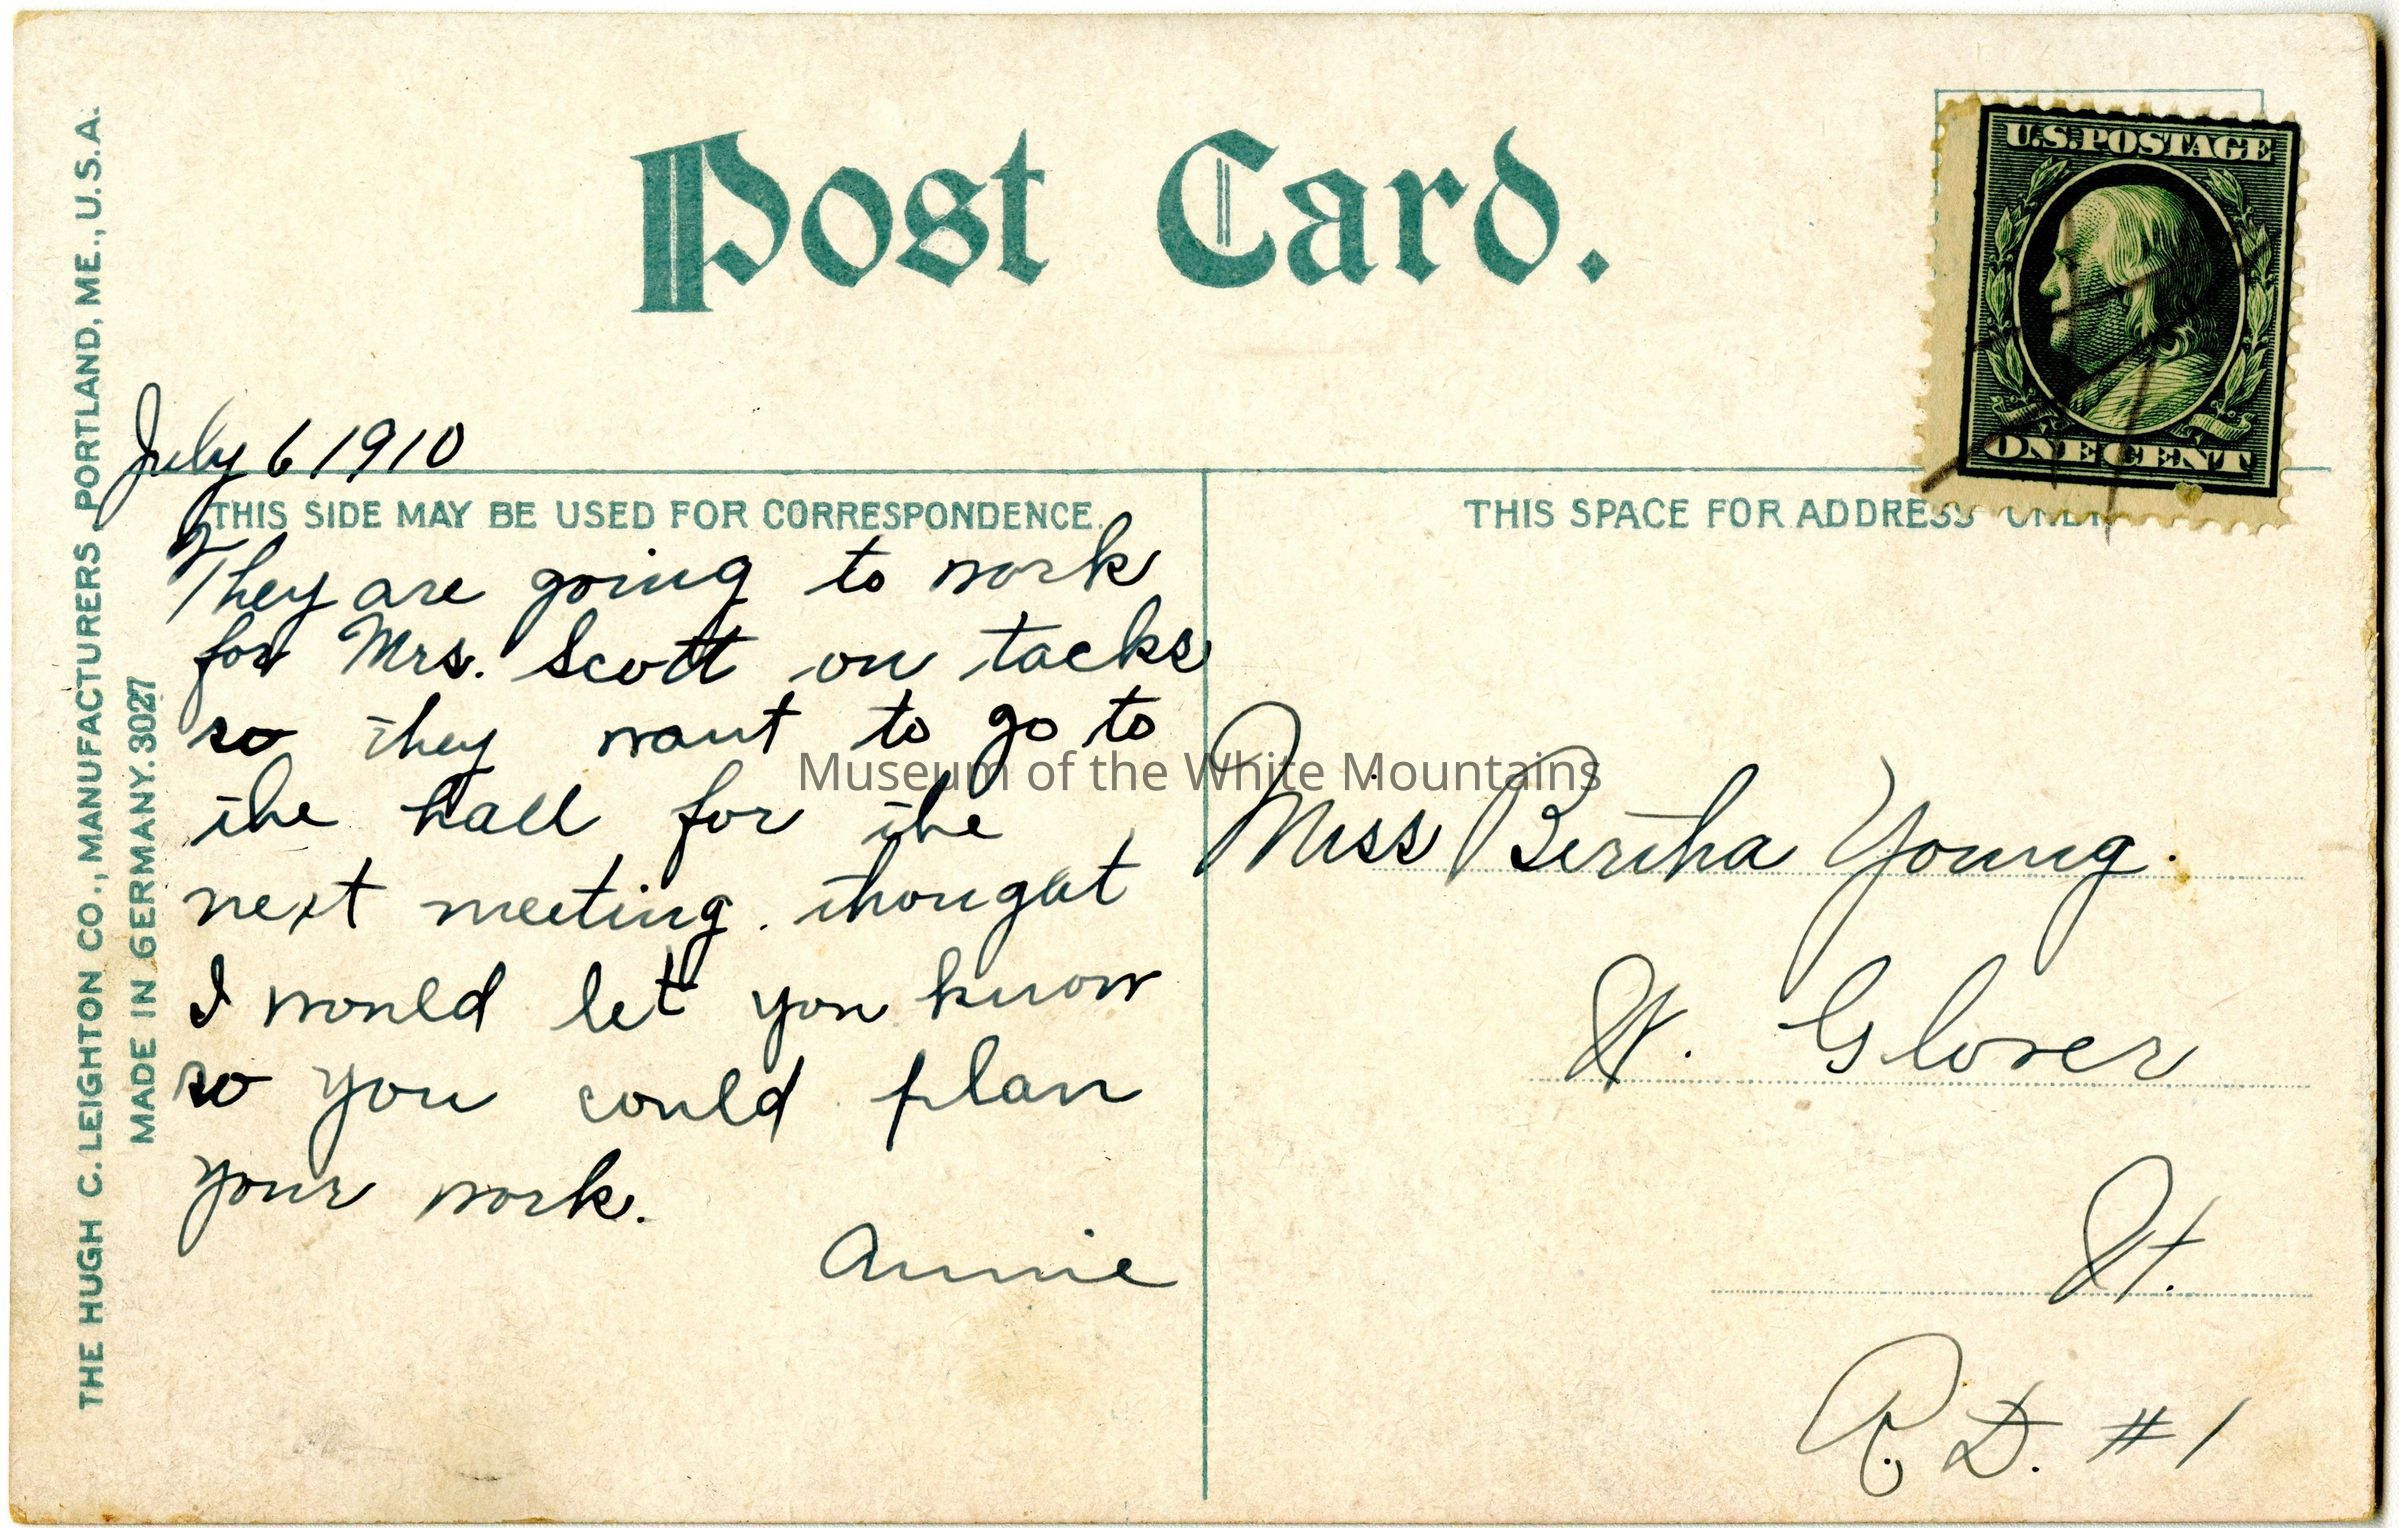 Post Card.
U.S. POSTAGE
ONE CENT
THE HUGH C. LEIGHTON CO., MANUFACTURERS, PORTLAND, ME., U.S.A.
MADE IN GERMANY. 3027
July 6 1910
THIS SIDE MAY BE USED FOR CORRESPONDENCE.
They are going to work
for Mrs. Scott on tacks
so they want to go to
the hall for the
next meeting. thought
I would let you know
so you could plan
your work.
Annie
THIS SPACE FOR ADDRESS ONLY
Miss Bertha Young.
W. Glover
Vt.
R. D. #1
Museum of the White Mountains